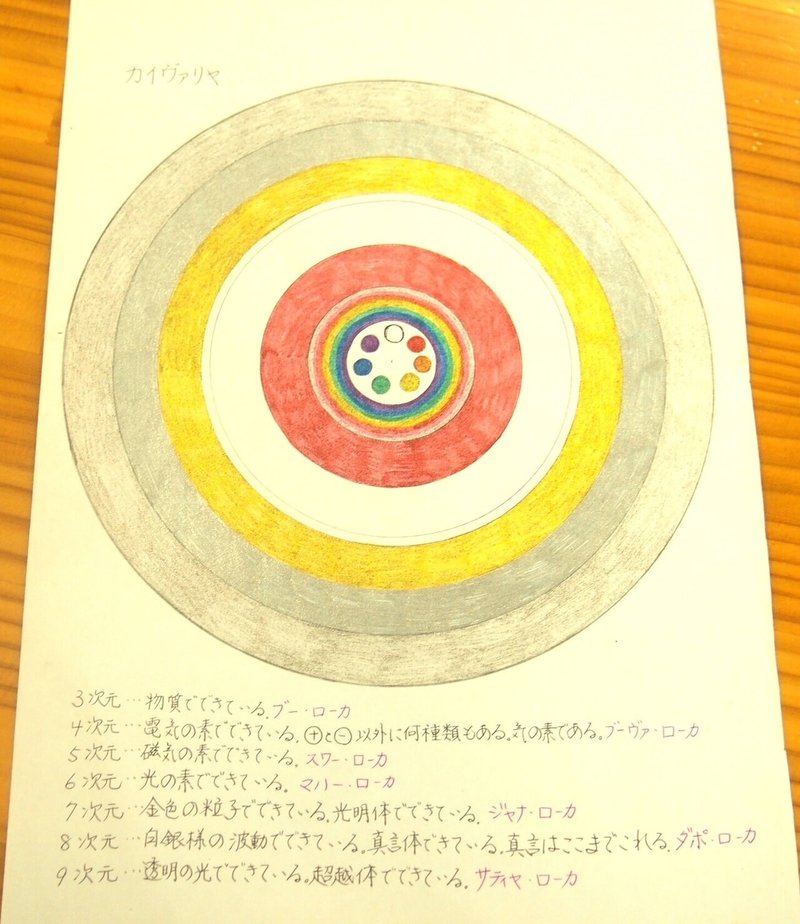 カイヴァリヤ
3次元…物質でできている。ブー・ローカ
4次元…電気の素でできている。⊕と⊖以外に何種類もある。気の素である。ブーヴァ・ローカ
5次元…磁気の素でできている。スワー・ローカ
6次元…光の素でできている。マハー・ローカ
7次元…金色の粒子でできている。光明体でできている。ジャナ・ローカ
8次元…白銀様の波動でできている。真言体できている。真言はここまでこれる。ダポ・ローカ
9次元…透明の光でできている。超越体でできている。サティヤ・ローカ